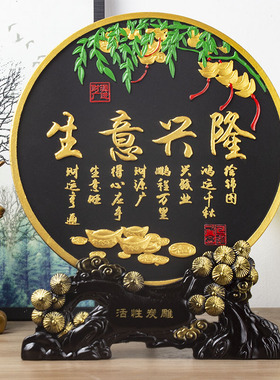 生意兴隆
绘锦图
鸿运千秋
兴骏业
鹏程万里
财源广
得心应手
生意旺
财运亨通
活性炭雕